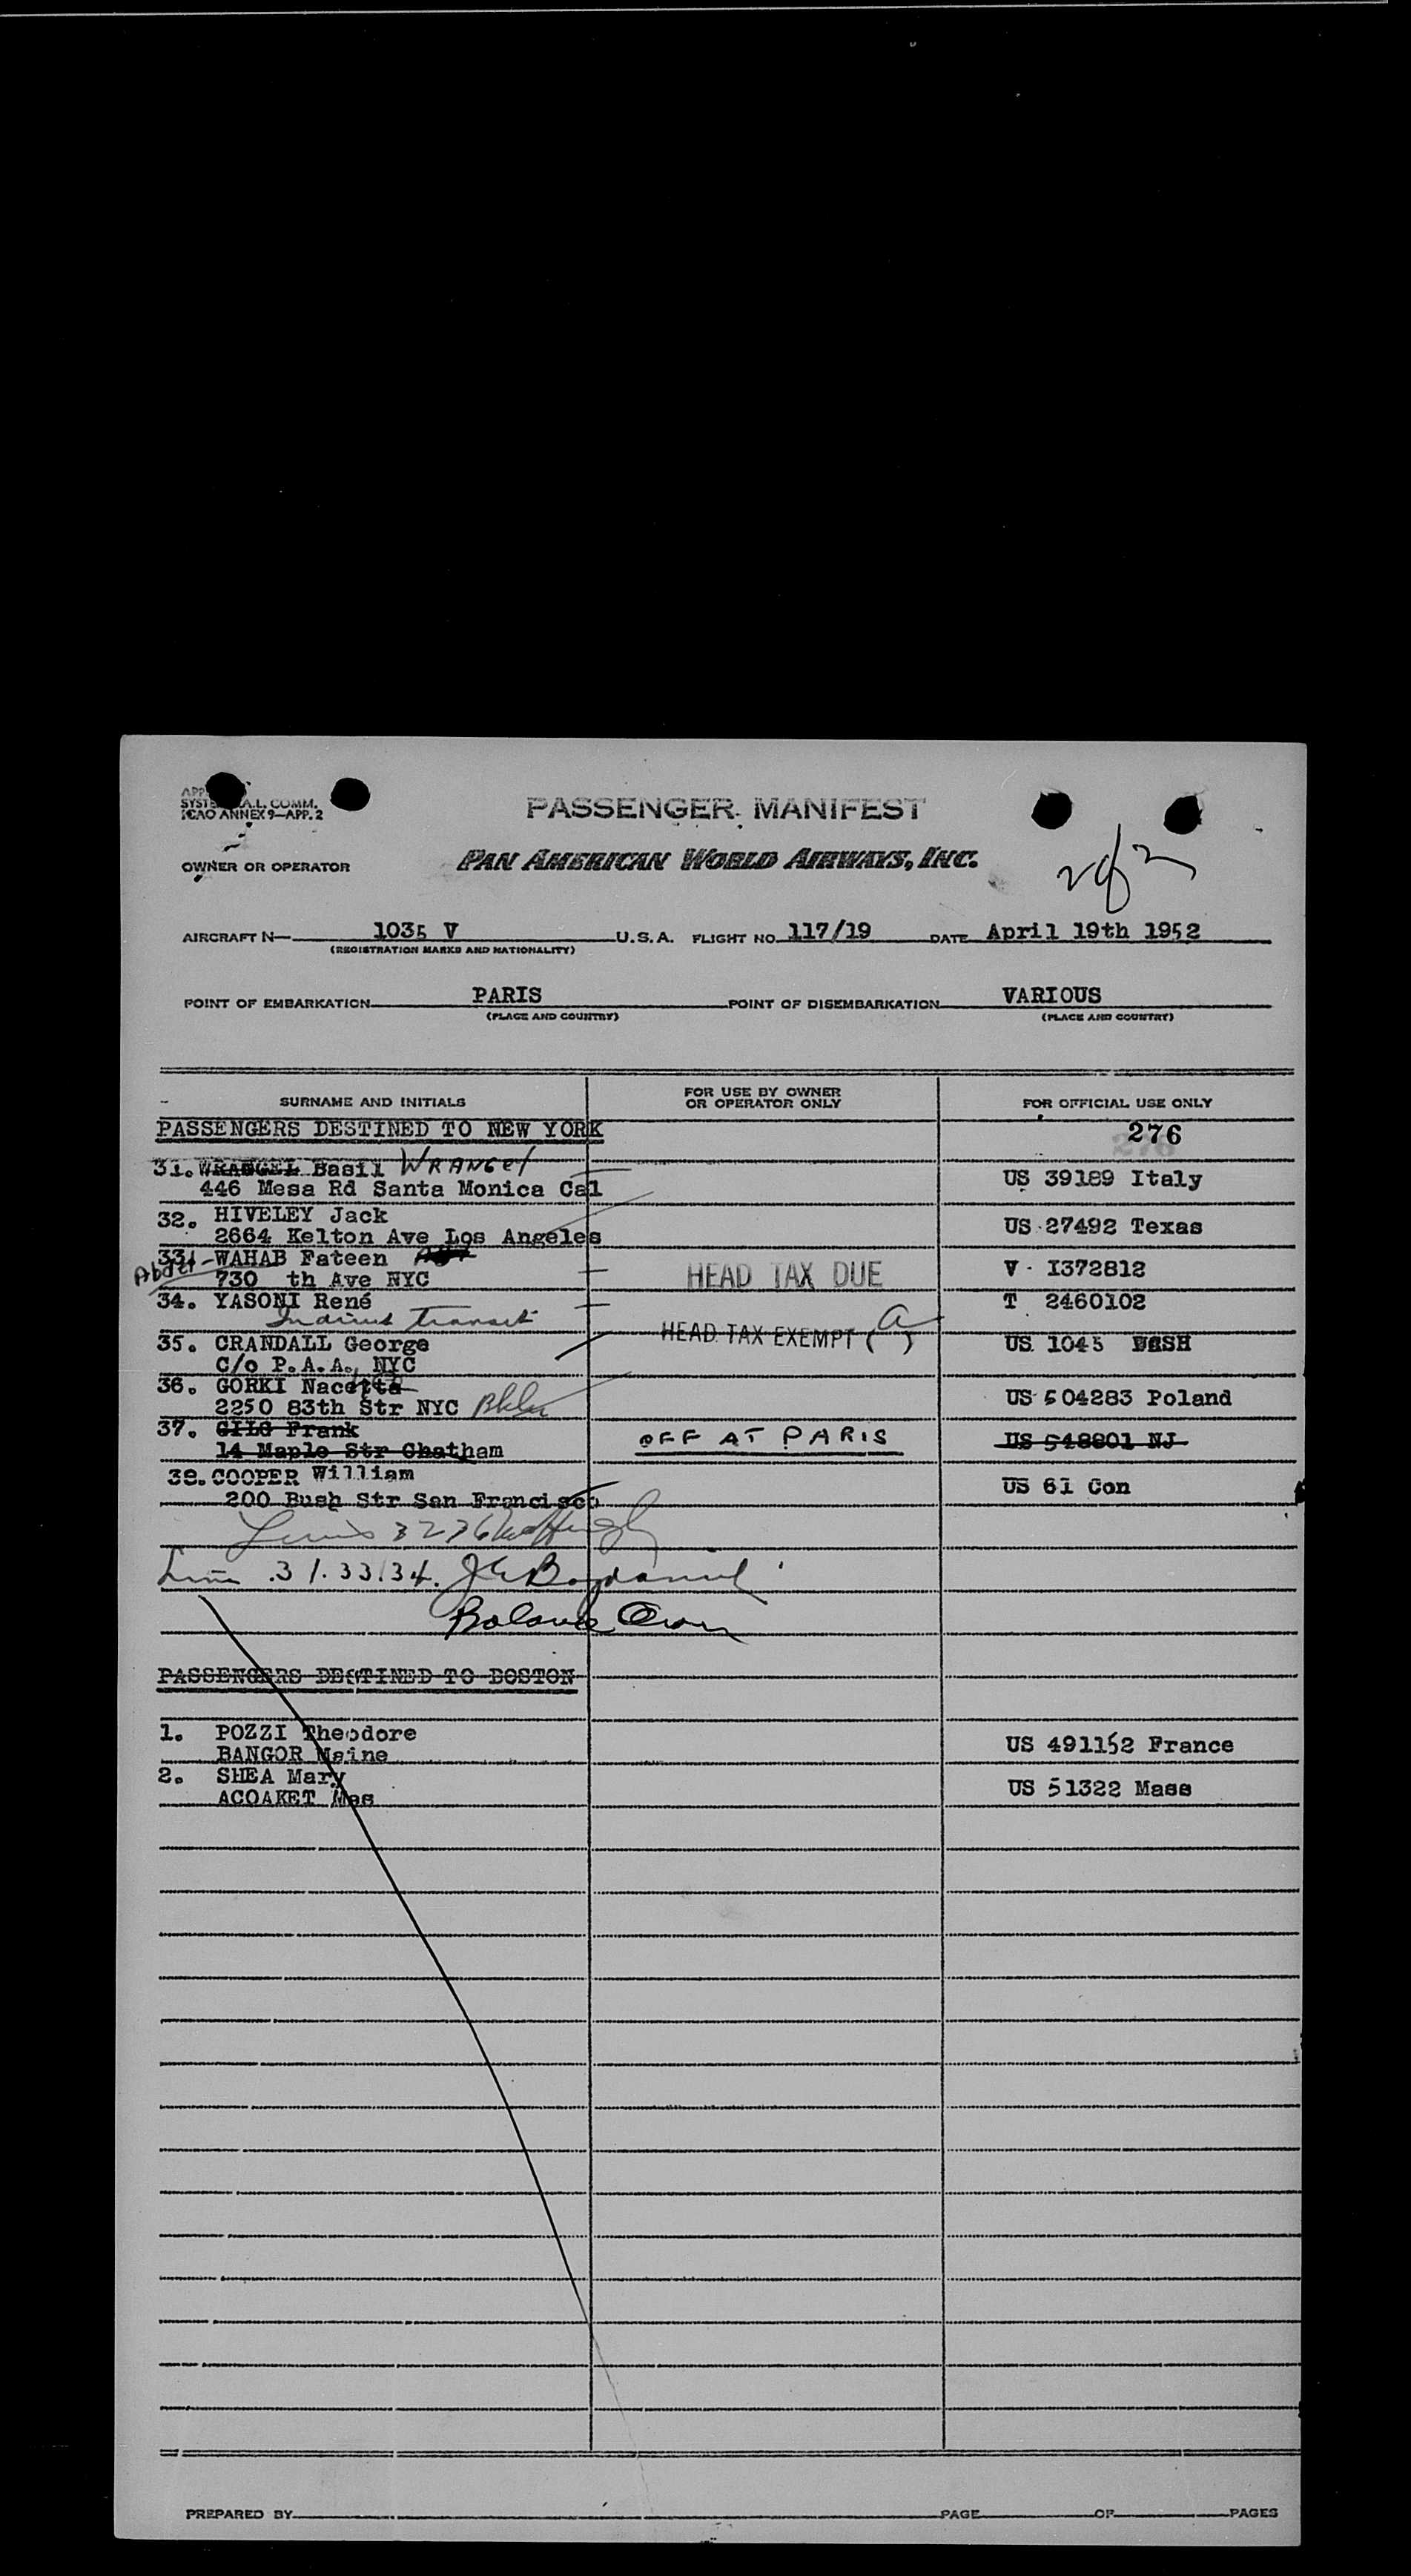 SYSTE A.L. COMM.
ICAO ANNEX 9—APP. 2
PASSENGER MANIFEST
OWNER OR OPERATOR
PAN AMERICAN WORLD AIRWAYS, INC.
2 of 2
AIRCRAFT N— 1035 V U.S.A. FLIGHT NO. 117/19 DATE April 19th 1952
(REGISTRATION MARKS AND NATIONALITY)
POINT OF EMBARKATION PARIS POINT OF DISEMBARKATION VARIOUS
(PLACE AND COUNTRY) (PLACE AND COUNTRY)
SURNAME AND INITIALS FOR USE BY OWNER OR OPERATOR ONLY FOR OFFICIAL USE ONLY
PASSENGERS DESTINED TO NEW YORK 276
31. WRANGEL Basil WRANGEl
446 Mesa Rd Santa Monica Cal US 39189 Italy
32. HIVELEY Jack
2664 Kelton Ave Los Angeles US 27492 Texas
33. Abdel-WAHAB Fateen
730 th Ave NYC HEAD TAX DUE V - I372812
34. YASONI René T 2460102
Indirect transit
HEAD TAX EXEMPT (a)
35. CRANDALL George US 1045
C/o P.A.A. NYC
36. GORKI
2250 83th Str NYC Bkln US 504283 Poland
37. GILG Frank OFF AT PARIS
14 Maple Str Chatham US 548801 NJ
38. COOPER William
200 Bush Str San Francisco US 61 Con
Lines 32 36
Line 31.33.34.
Balance
PASSENGERS DESTINED TO BOSTON
1. POZZI Theodore
BANGOR Maine US 491152 France
2. SHEA Mary
ACOAKET Mas US 51322 Mass
PREPARED BY PAGE OF PAGES